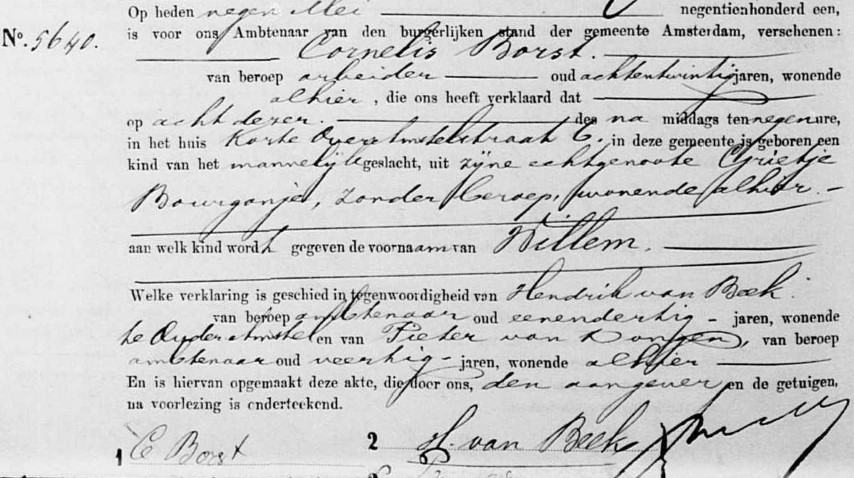 Op heden negen Mei negentienhonderd een,
No. 5640. is voor ons Ambtenaar van den burgerlijken stand der gemeente Amsterdam, verschenen:
Cornelis Borst.
van beroep arbeider oud achtentwintig jaren, wonende
alhier, die ons heeft verklaard dat
op acht dezer. des na middags ten negen ure,
in het huis Korte Ouderamstelstraat 6. in deze gemeente is geboren een
kind van het mannelijk geslacht, uit zijne echtgenoote Grietje
Bourgonje, zonder beroep, wonende alhier.
aan welk kind wordt gegeven de voornaam van Willem.
Welke verklaring is geschied in tegenwoordigheid van Hendrik van Beek.
van beroep ambtenaar oud eenendertig - jaren, wonende
te Ouderamstel en van Pieter van Dongen, van beroep
ambtenaar oud veertig - jaren, wonende alhier
En is hiervan opgemaakt deze akte, die door ons, den aangever en de getuigen,
na voorlezing is onderteekend.
1 C Borst 2 H. van Beek